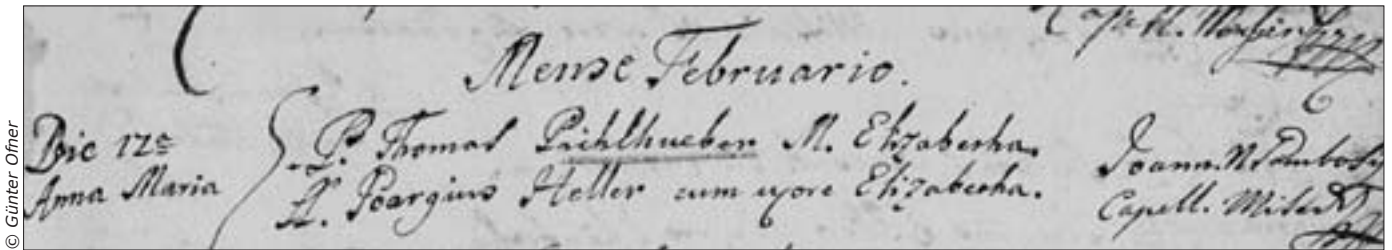 © Günter Ofner
Mense Februario.
Die 12ᵃ
Anna Maria
P. Thomas Prihlhueber M. Elizabetha.
Georgius Heller cum uxore Elizabetha.
Joann. N
Capell.